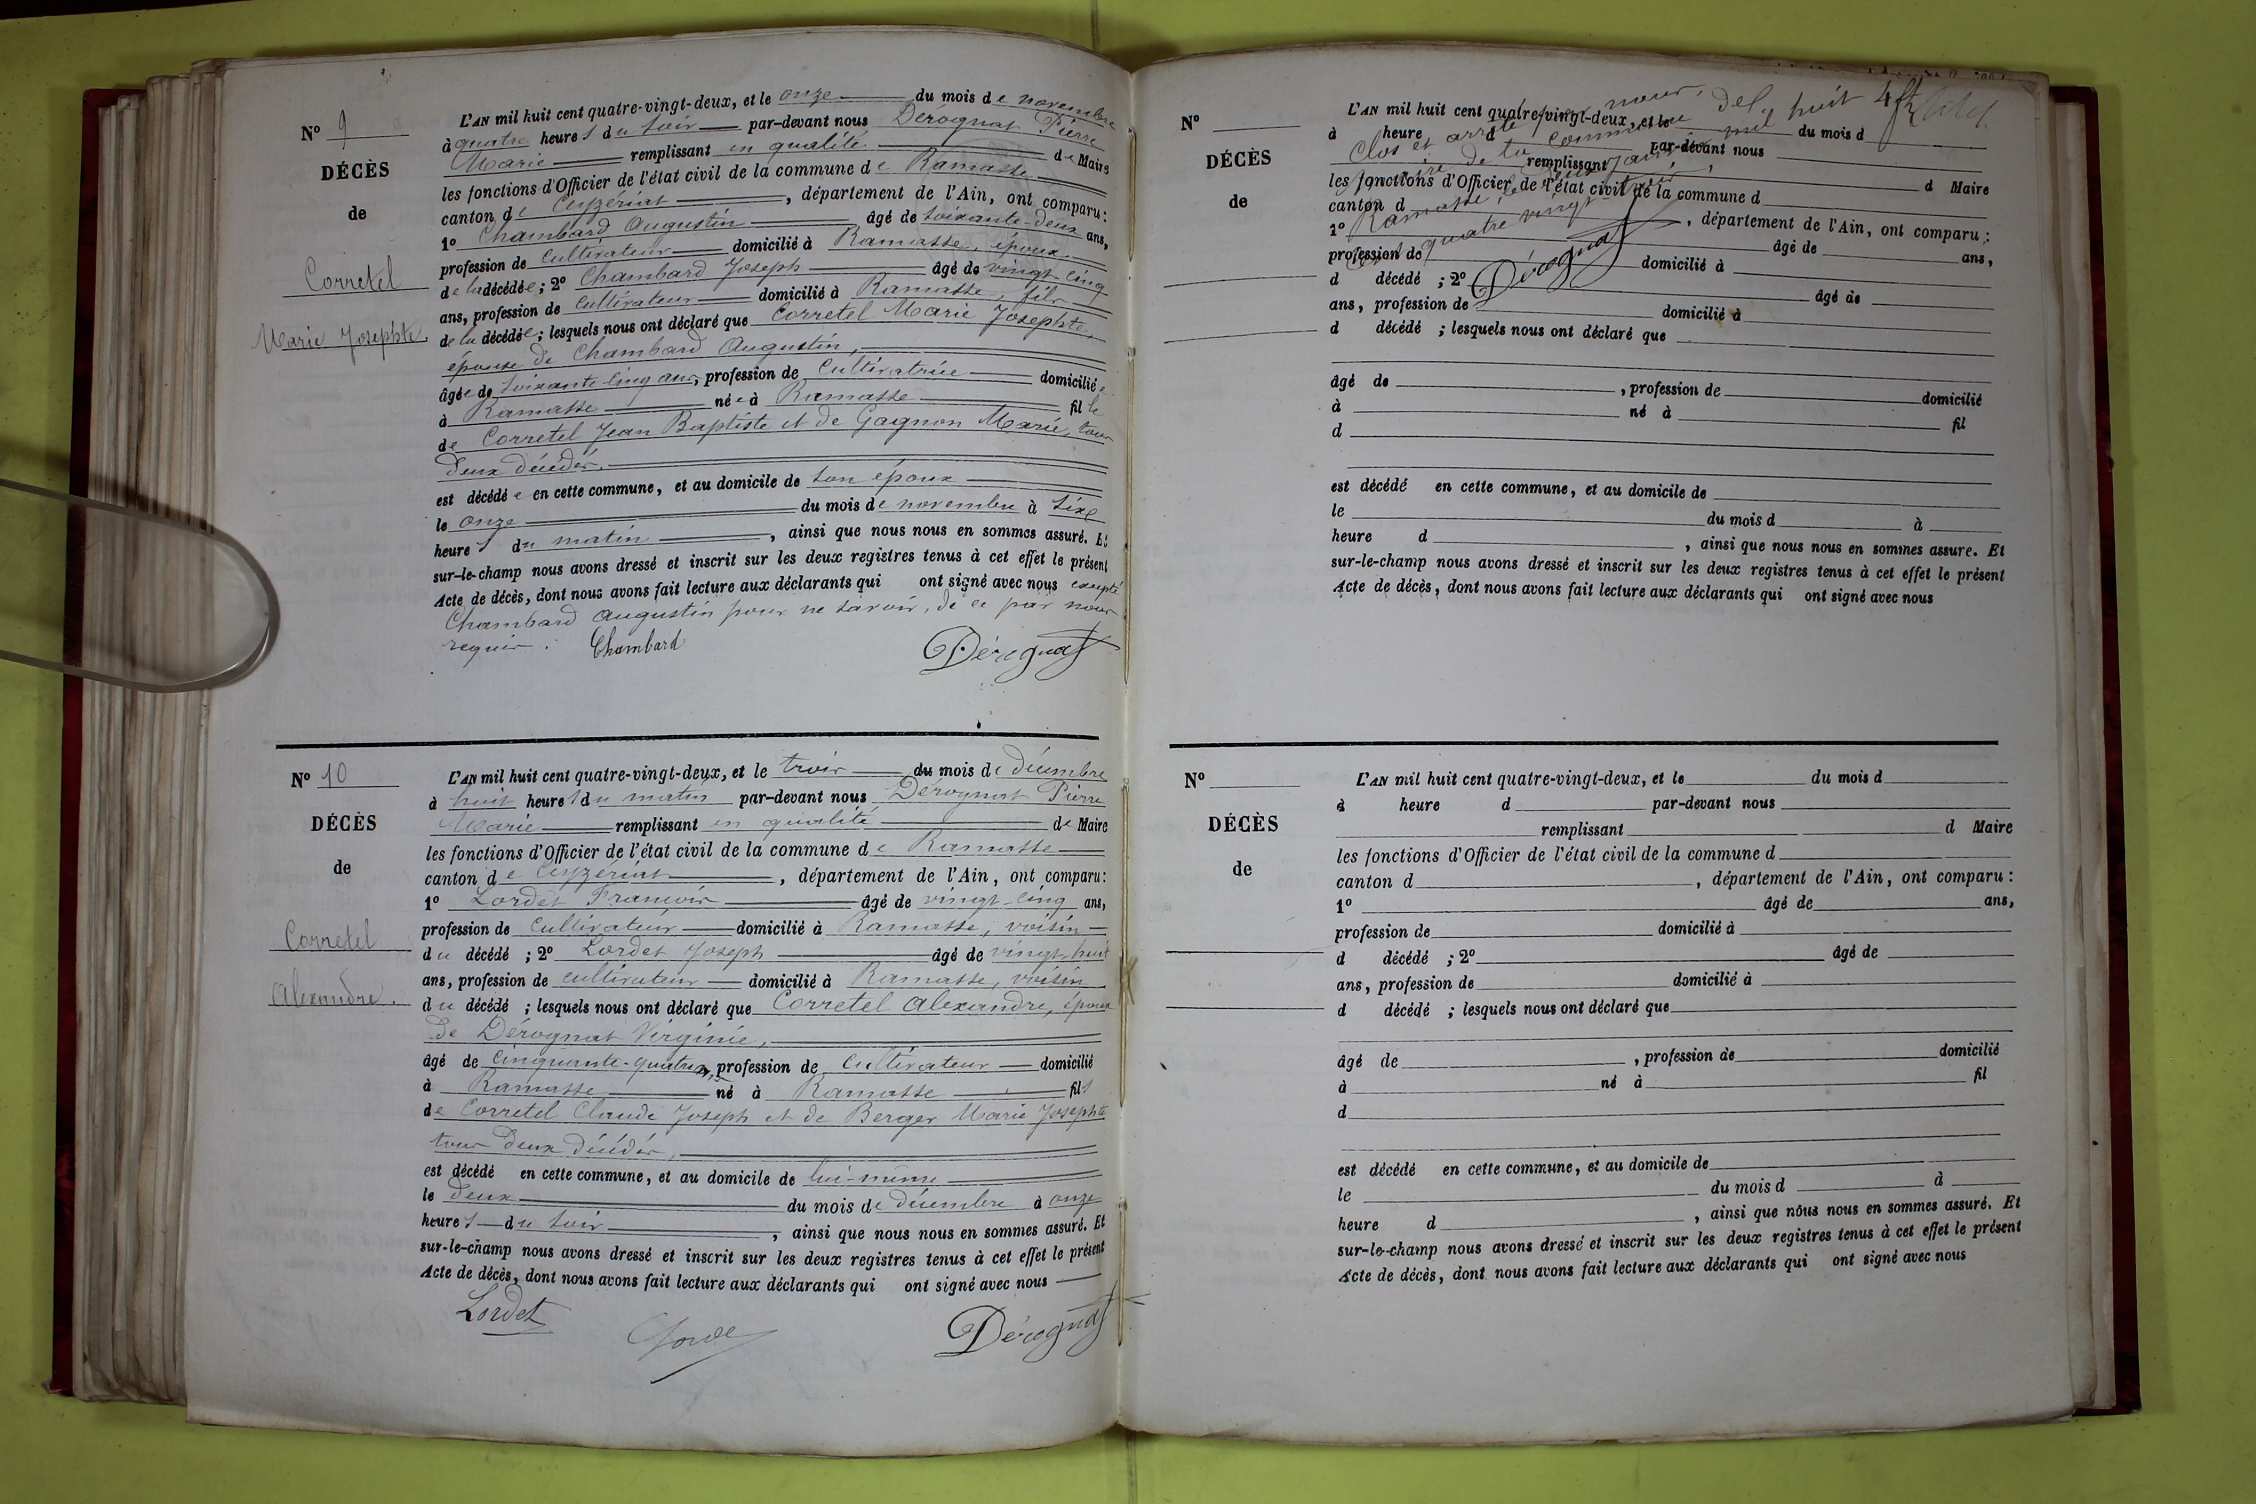 N° 9
DÉCÈS
de
Corretel
Marie Josephte.
L'AN mil huit cent quatre-vingt-deux, et le onze du mois de novembre
à quatre heures du soir par-devant nous Dérognat Pierre
Marie remplissant en qualité de Maire
les fonctions d'Officier de l'état civil de la commune de Ramasse
canton de Ceyzériat, département de l'Ain, ont comparu:
1° Chambard Augustin âgé de soixante-deux ans,
profession de cultivateur domicilié à Ramasse, époux
de la décédée; 2° Chambard Joseph âgé de vingt cinq
ans, profession de cultivateur domicilié à Ramasse, fils
de la décédée; lesquels nous ont déclaré que Corretel Marie Josephte,
épouse de Chambard Augustin,
âgée de soixante cinq ans, profession de cultivatrice domiciliée
à Ramasse née à Ramasse fille
de Corretel Jean Baptiste et de Gagnon Marie, tous
deux décédés.
est décédée en cette commune, et au domicile de son époux
le onze du mois de novembre à sixe
heures du matin, ainsi que nous nous en sommes assuré. Et
sur-le-champ nous avons dressé et inscrit sur les deux registres tenus à cet effet le présent
Acte de décès, dont nous avons fait lecture aux déclarants qui ont signé avec nous excepté
Chambard Augustin pour ne savoir, de ce par nous
requis. Chambard Dérognat
N° 10
DÉCÈS
de
Corretel
Alexandre.
L'AN mil huit cent quatre-vingt-deux, et le trois du mois de décembre
à huit heures du matin par-devant nous Dérognat Pierre
Marie remplissant en qualité de Maire
les fonctions d'Officier de l'état civil de la commune de Ramasse
canton de Ceyzériat, département de l'Ain, ont comparu:
1° Lordet François âgé de vingt-cinq ans,
profession de cultivateur domicilié à Ramasse, voisin
du décédé; 2° Lordet Joseph âgé de vingt huit
ans, profession de cultivateur domicilié à Ramasse, voisin
du décédé; lesquels nous ont déclaré que Corretel Alexandre, époux
de Dérognat Virginie,
âgé de cinquante-quatre ans, profession de cultivateur domicilié
à Ramasse né à Ramasse fils
de Corretel Claude Joseph et de Berger Marie Josephte
tous deux décédés,
est décédé en cette commune, et au domicile de lui-même
le deux du mois de décembre à onze
heures du soir, ainsi que nous nous en sommes assuré. Et
sur-le-champ nous avons dressé et inscrit sur les deux registres tenus à cet effet le présent
Acte de décès, dont nous avons fait lecture aux déclarants qui ont signé avec nous
Lordet Dérognat
N°
DÉCÈS
de
Clos et arrêté par nous,
Maire de la commune
Ramasse, le deux janvier mil huit
cent quatre vingt trois.
Dérognat
L'AN mil huit cent quatre-vingt-deux, et le du mois d
à heure d par-devant nous
remplissant d Maire
les fonctions d'Officier de l'état civil de la commune d
canton d, département de l'Ain, ont comparu:
1° âgé de ans,
profession de domicilié à
d décédé; 2° âgé de
ans, profession de domicilié à
d décédé; lesquels nous ont déclaré que
âgé de, profession de domicilié
à né à fil
d
est décédé en cette commune, et au domicile de
le du mois d à
heure d, ainsi que nous nous en sommes assuré. Et
sur-le-champ nous avons dressé et inscrit sur les deux registres tenus à cet effet le présent
Acte de décès, dont nous avons fait lecture aux déclarants qui ont signé avec nous
N°
DÉCÈS
de
L'AN mil huit cent quatre-vingt-deux, et le du mois d
à heure d par-devant nous
remplissant d Maire
les fonctions d'Officier de l'état civil de la commune d
canton d, département de l'Ain, ont comparu:
1° âgé de ans,
profession de domicilié à
d décédé; 2° âgé de
ans, profession de domicilié à
d décédé; lesquels nous ont déclaré que
âgé de, profession de domicilié
à né à fil
d
est décédé en cette commune, et au domicile de
le du mois d à
heure d, ainsi que nous nous en sommes assuré. Et
sur-le-champ nous avons dressé et inscrit sur les deux registres tenus à cet effet le présent
Acte de décès, dont nous avons fait lecture aux déclarants qui ont signé avec nous